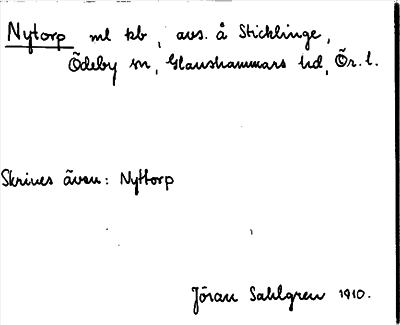 Nytorp ml kb, avs. å Sticklinge,
Ödeby sn, Glanshammars hd, Ör. l.
Skrives även: Nyttorp
Jöran Sahlgren 1910.